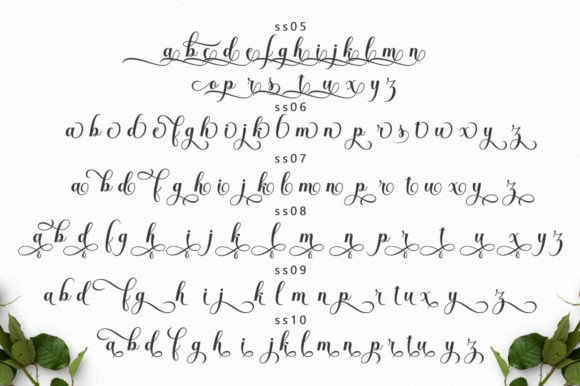 ss05
a b c d e f g h i j k l m n
o p r s t u x y z
ss06
a b c d e f g h i j k l m n p r s t u x y z
ss07
a b d f g h i j k l m n p r t u x y z
ss08
a b d f g h i j k l m n p r t u x y z
ss09
a b d f g h i j k l m n p r t u x y z
ss10
a b d f g h i j k l m n p r t u x y z